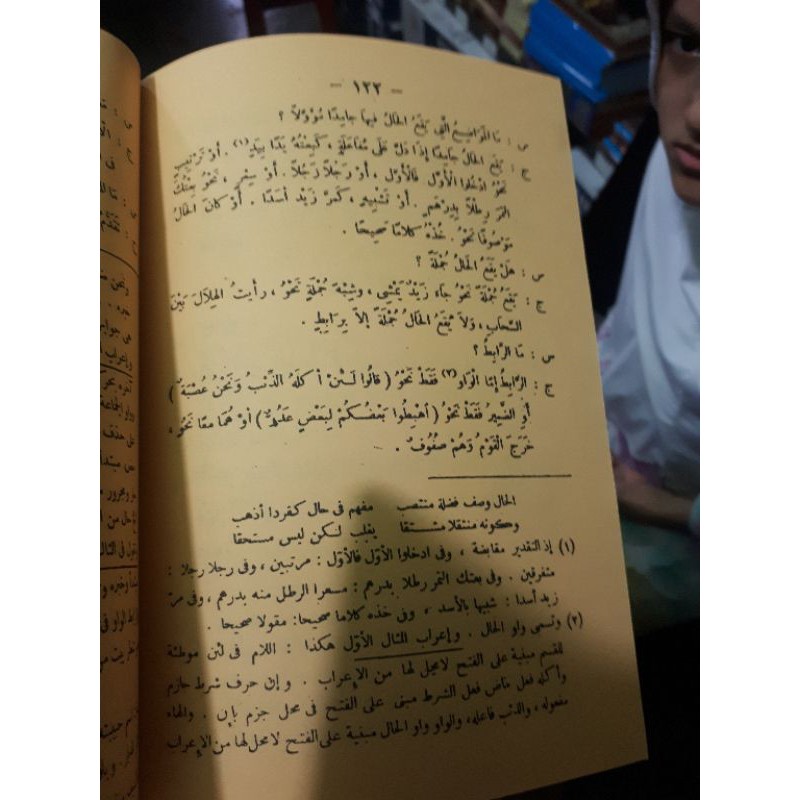 - ١٢٢ -
س : مَا المَوَاضِيعُ الَّتِي يَقَعُ الحَالُ فِيهَا جَامِدًا مُؤَوَّلاً ؟
ج : يَقَعُ الحَالُ جَامِدًا إِذَا دَلَّ عَلَى مُفَاعَلَةٍ ، كَبِعْتُهُ يَدًا بِيَدٍ (١) . أَوْ تَرْتِيبٍ
نَحْوُ ادْخُلُوا الْأَوَّلَ فَالْأَوَّلَ ، أَوْ رَجُلاً رَجُلاً . أَوْ سِعْرٍ ، نَحْوُ بِعْتُكَ
التَّمْرَ رِطْلاً بِدِرْهَمٍ . أَوْ تَشْبِيهٍ ، كَمَرَّ زَيْدٌ أَسَدًا . أَوْ كَانَ الحَالُ
مَوْصُوفًا نَحْوُ . خُذْهُ كَلَامًا صَحِيحًا .
س : هَلْ يَقَعُ الحَالُ جُمْلَةً ؟
ج : يَقَعُ جُمْلَةً نَحْوُ جَاءَ زَيْدٌ يَمْشِي ، وَشِبْهَ جُمْلَةٍ نَحْوُ ، رَأَيْتُ الهِلَالَ بَيْنَ
السَّحَابِ ، وَلَا يَقَعُ الحَالُ جُمْلَةً إِلاَّ بِرَابِطٍ .
س : مَا الرَّابِطُ ؟
ج : الرَّابِطُ إِمَّا الْوَاو (٢) فَقَطْ نَحْوُ ( قَالُوا لَئِنْ أَكَلَهُ الذِّئْبُ وَنَحْنُ عُصْبَةٌ )
أَوِ الضَّمِيرُ فَقَطْ نَحْوُ ( اهْبِطُوا بَعْضُكُمْ لِبَعْضٍ عَدُوٌّ ) أَوْ هُمَا مَعًا نَحْوُ ،
خَرَجَ القَوْمُ وَهُمْ صُفُوفٌ .
الحال وصف فضلة منتصب مفهم فى حال كفردا أذهب
وكونه منتقلا مشتقا يغلب لكن ليس مستحقا
(١) إذ التقدير مقابضة ، وفى ادخلوا الأول فالأول : مرتبين ، وفى رجلا رجلا :
متفرقين . وفى بعتك التمر رطلا بدرهم : مسعرا الرطل منه بدرهم ، وفى مر
زيد أسدا : شبيها بالأسد ، وفى خذه كلاما صحيحا : مقولا صحيحا .
(٢) وتسمى واو الحال . وإعراب المثال الأول هكذا : اللام فى لئن موطئة
للقسم مبنية على الفتح لا محل لها من الإعراب . وإن حرف شرط جازم
وأكله فعل ماض فعل الشرط مبنى على الفتح فى محل جزم بإن . والهاء
مفعوله ، والذئب فاعله ، والواو واو الحال مبنية على الفتح لا محل لها من الإعراب